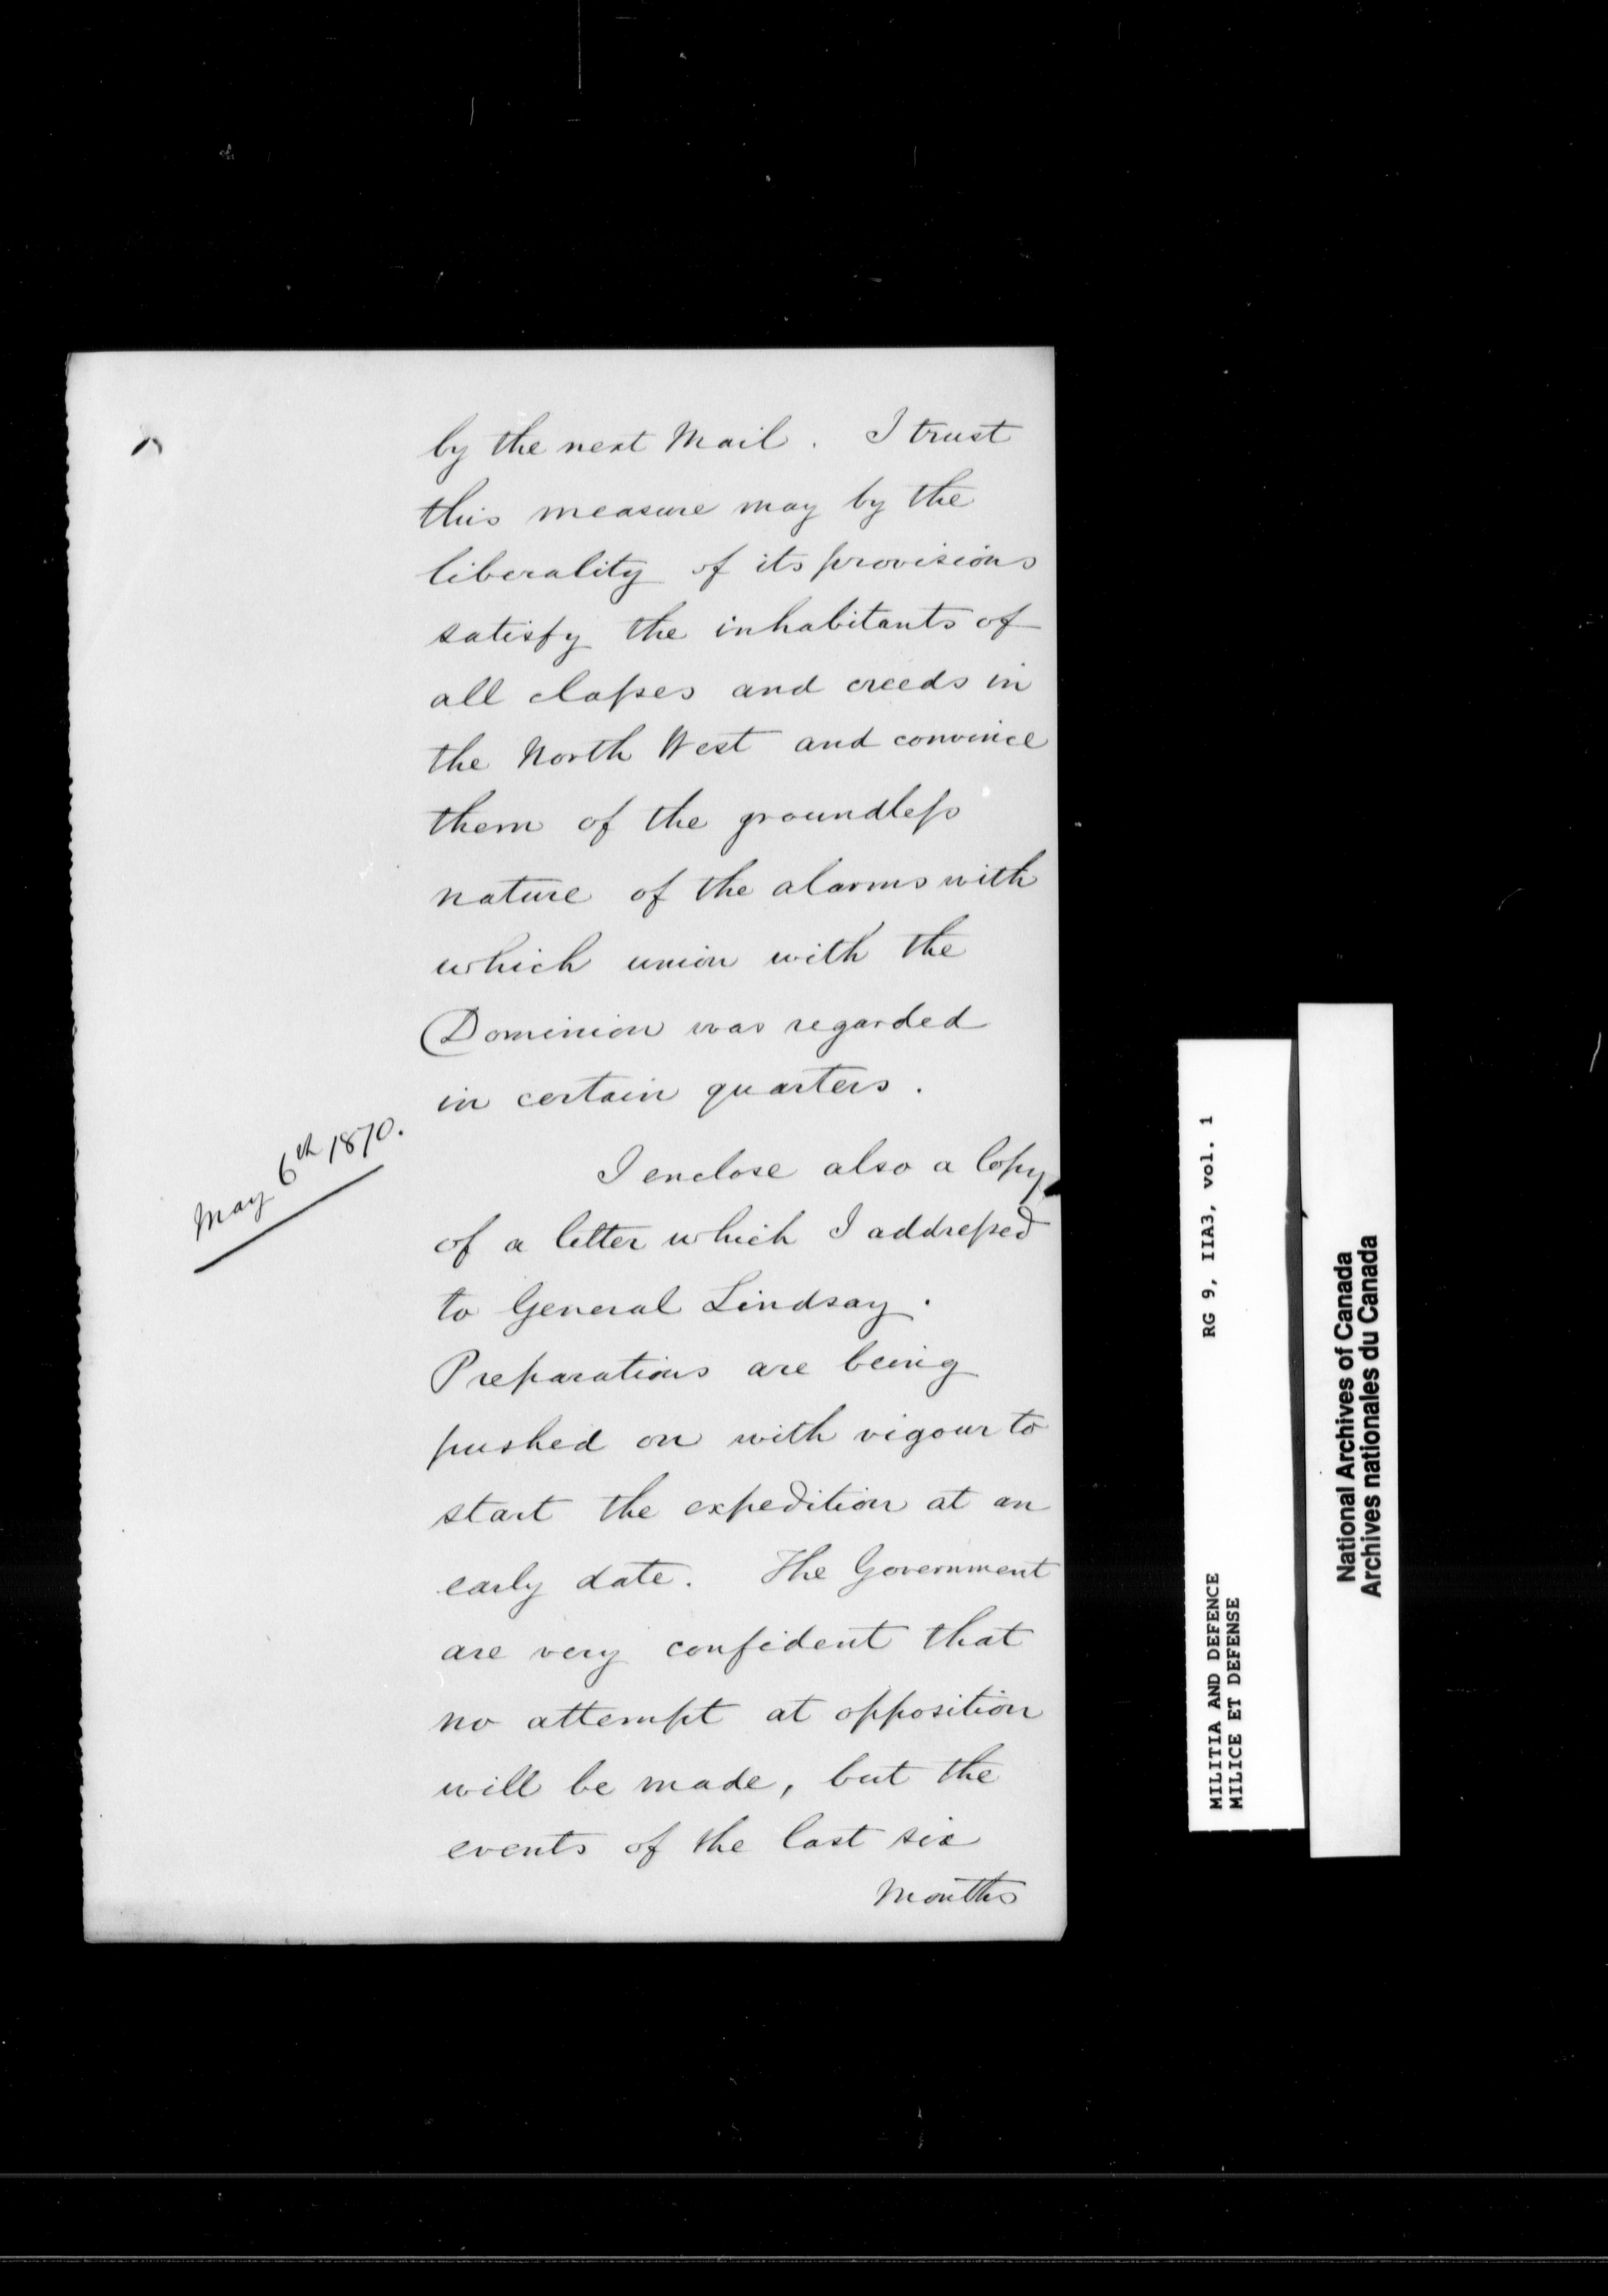 by the next Mail. I trust
this measure may by the
liberality of its provisions
satisfy the inhabitants of
all classes and creeds in
the North West and convince
them of the groundless
nature of the alarms with
which union with the
Dominion was regarded
in certain quarters.
May 6th 1870.
I enclose also a Copy
of a letter which I addressed
to General Lindsay.
Preparations are being
pushed on with vigour to
start the expedition at an
early date. The Government
are very confident that
no attempt at opposition
will be made, but the
events of the last six
Months
MILITIA AND DEFENCE RG 9, IIA3, vol. 1
MILICE ET DEFENSE
National Archives of Canada
Archives nationales du Canada